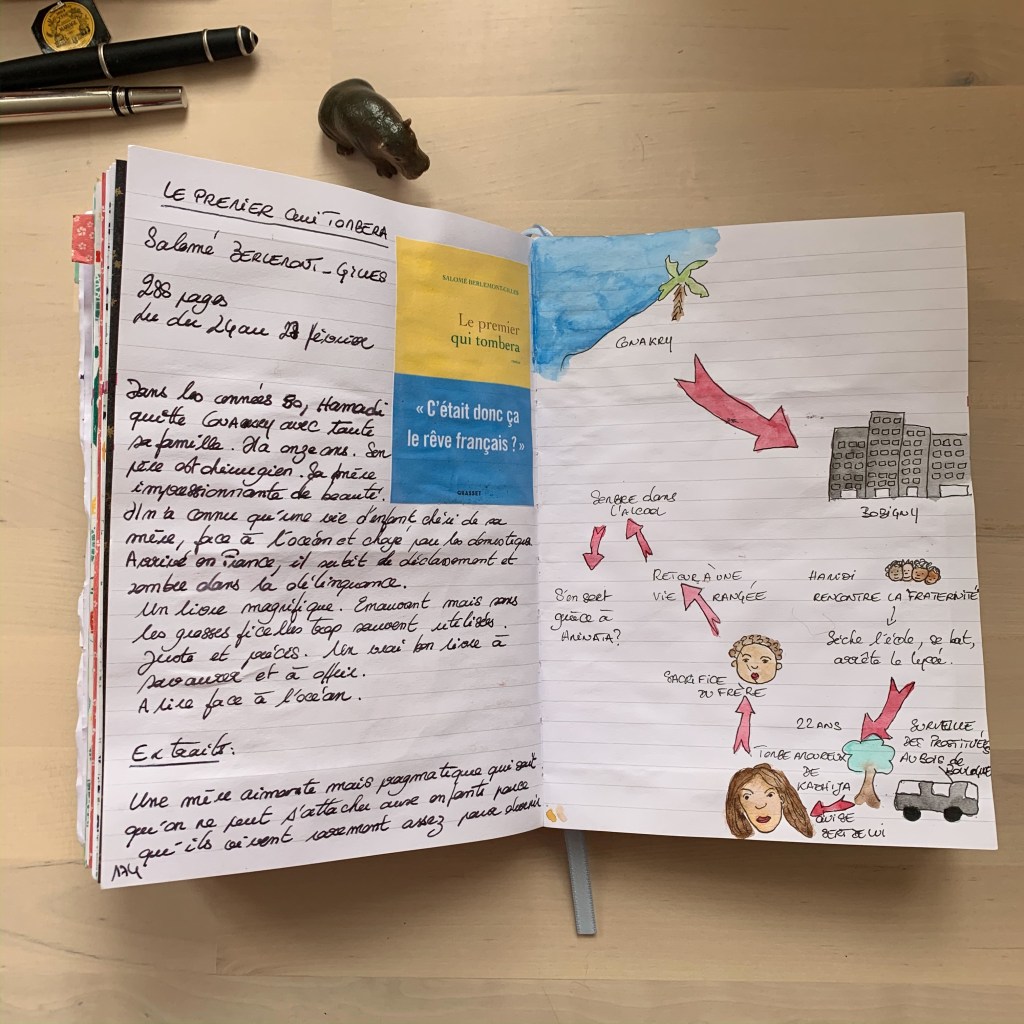 LE PREMIER QUI TOMBERA
Salomé BERLEMONT-GILLES
288 pages
Lu du 24 au 28 février
Dans les années 80, Hamadi
quitte CONAKRY avec toute
sa famille. Il a onze ans. Son
père est chirurgien. Sa mère
impressionnante de beauté.
Il n'a connu qu'une vie d'enfant chéri de sa
mère, face à l'océan et choyé par les domestiques.
Arrivé en France, il subit le déclassement et
sombre dans la délinquance.
Un livre magnifique. Emouvant mais sans
les grosses ficelles trop souvent utilisées.
Juste et précis. Un vrai bon livre à
savourer et à offrir.
A lire face à l'océan.
Extraits:
Une mère aimante mais pragmatique qui sait
qu'on ne peut s'attacher aux enfants parce
qu'ils vivent rarement assez pour devenir
174
SALOMÉ BERLEMONT-GILLES
Le premier
qui tombera
roman
« C'était donc ça
le rêve français ? »
GRASSET
CONAKRY
BOBIGNY
HAMIDI
RENCONTRE LA FRATERNITÉ
Sèche l'école, se bat,
arrête le lycée.
22 ANS
SURVEILLE
DES PROSTITUÉES
AU BOIS de
BOULOGNE
TOMBE AMOUREUX
DE
KADHIJA
QUI SE
SERT DE LUI
SACRIFICE
DU FRÈRE
RETOUR À UNE
VIE RANGÉE
SOMBRE dans
L'ALCOOL
S'en sort
grâce à
AMINATA?